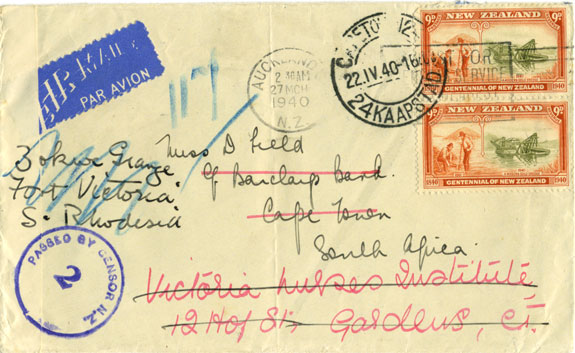 PAR AVION
AUCKLAND
2 30AM
27 MCH
1940
N.Z.
22.IV.40-16
24 KAAPSTAD
9D NEW ZEALAND
1840 CENTENNIAL OF NEW ZEALAND 1940
9D NEW ZEALAND 9D
1840 CENTENNIAL OF NEW ZEALAND 1940
117
Miss D Field
c/o Barclays Bank.
Cape Town
South Africa.
Grange
Fort Victoria.
S. Rhodesia
Victoria Nurses Institute
12 Hof St. Gardens, C.T.
PASSED BY CENSOR N.Z.
2